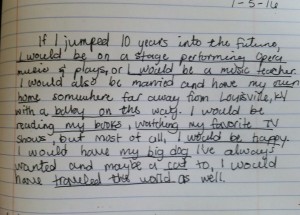 1-5-16
If I jumped 10 years into the future,
I would be on a stage performing Opera
music & plays, or I would be a music teacher.
I would also be married and have my own
home somewhere far away from Louisville, KY
with a baby on the way. I would be
reading my books, watching my favorite TV
shows, but most of all, I would be happy.
I would have my big dog I've always
wanted and maybe a cat to, I would
have traveled the world as well.